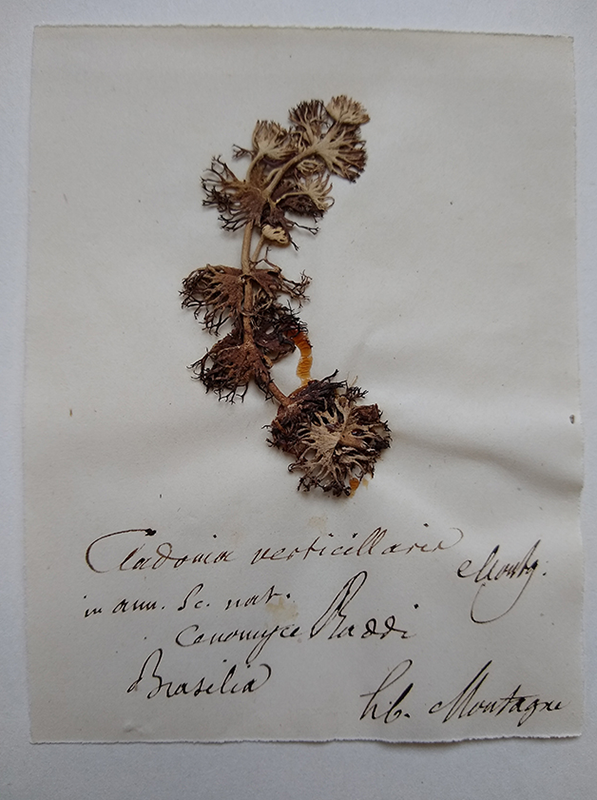 Cladonia verticillaris Montg.
in ann. Sc. nat.
Cenomyce Raddi
Brasilia
hb. Montagne